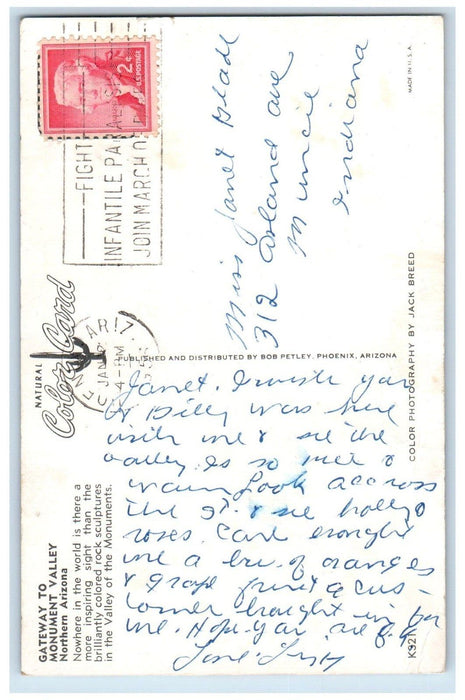 GATEWAY TO
MONUMENT VALLEY
Northern Arizona
Nowhere in the world is there a
more inspiring sight than the
brilliantly colored rock sculptures
in the Valley of the Monuments.
NATURAL
Color Card
2¢
U.S. POSTAGE
FIGHT
INFANTILE PA
JOIN MARCH O
ARIZ.
JAN
4-PM
PUBLISHED AND DISTRIBUTED BY BOB PETLEY, PHOENIX, ARIZONA
COLOR PHOTOGRAPHY BY JACK BREED
MADE IN U.S.A.
K921
Miss Janet Beall
312 Asland Ave
Muncie
Indiana
Janet. I wish you
& Billy was here
with me & see the
valley is so nice &
warm Look accross
the st. & see holly
roses. Carl brought
me a bu. of oranges
& grape fruit a cus-
tomer brought in for
me. Hope you are O.K.
Love